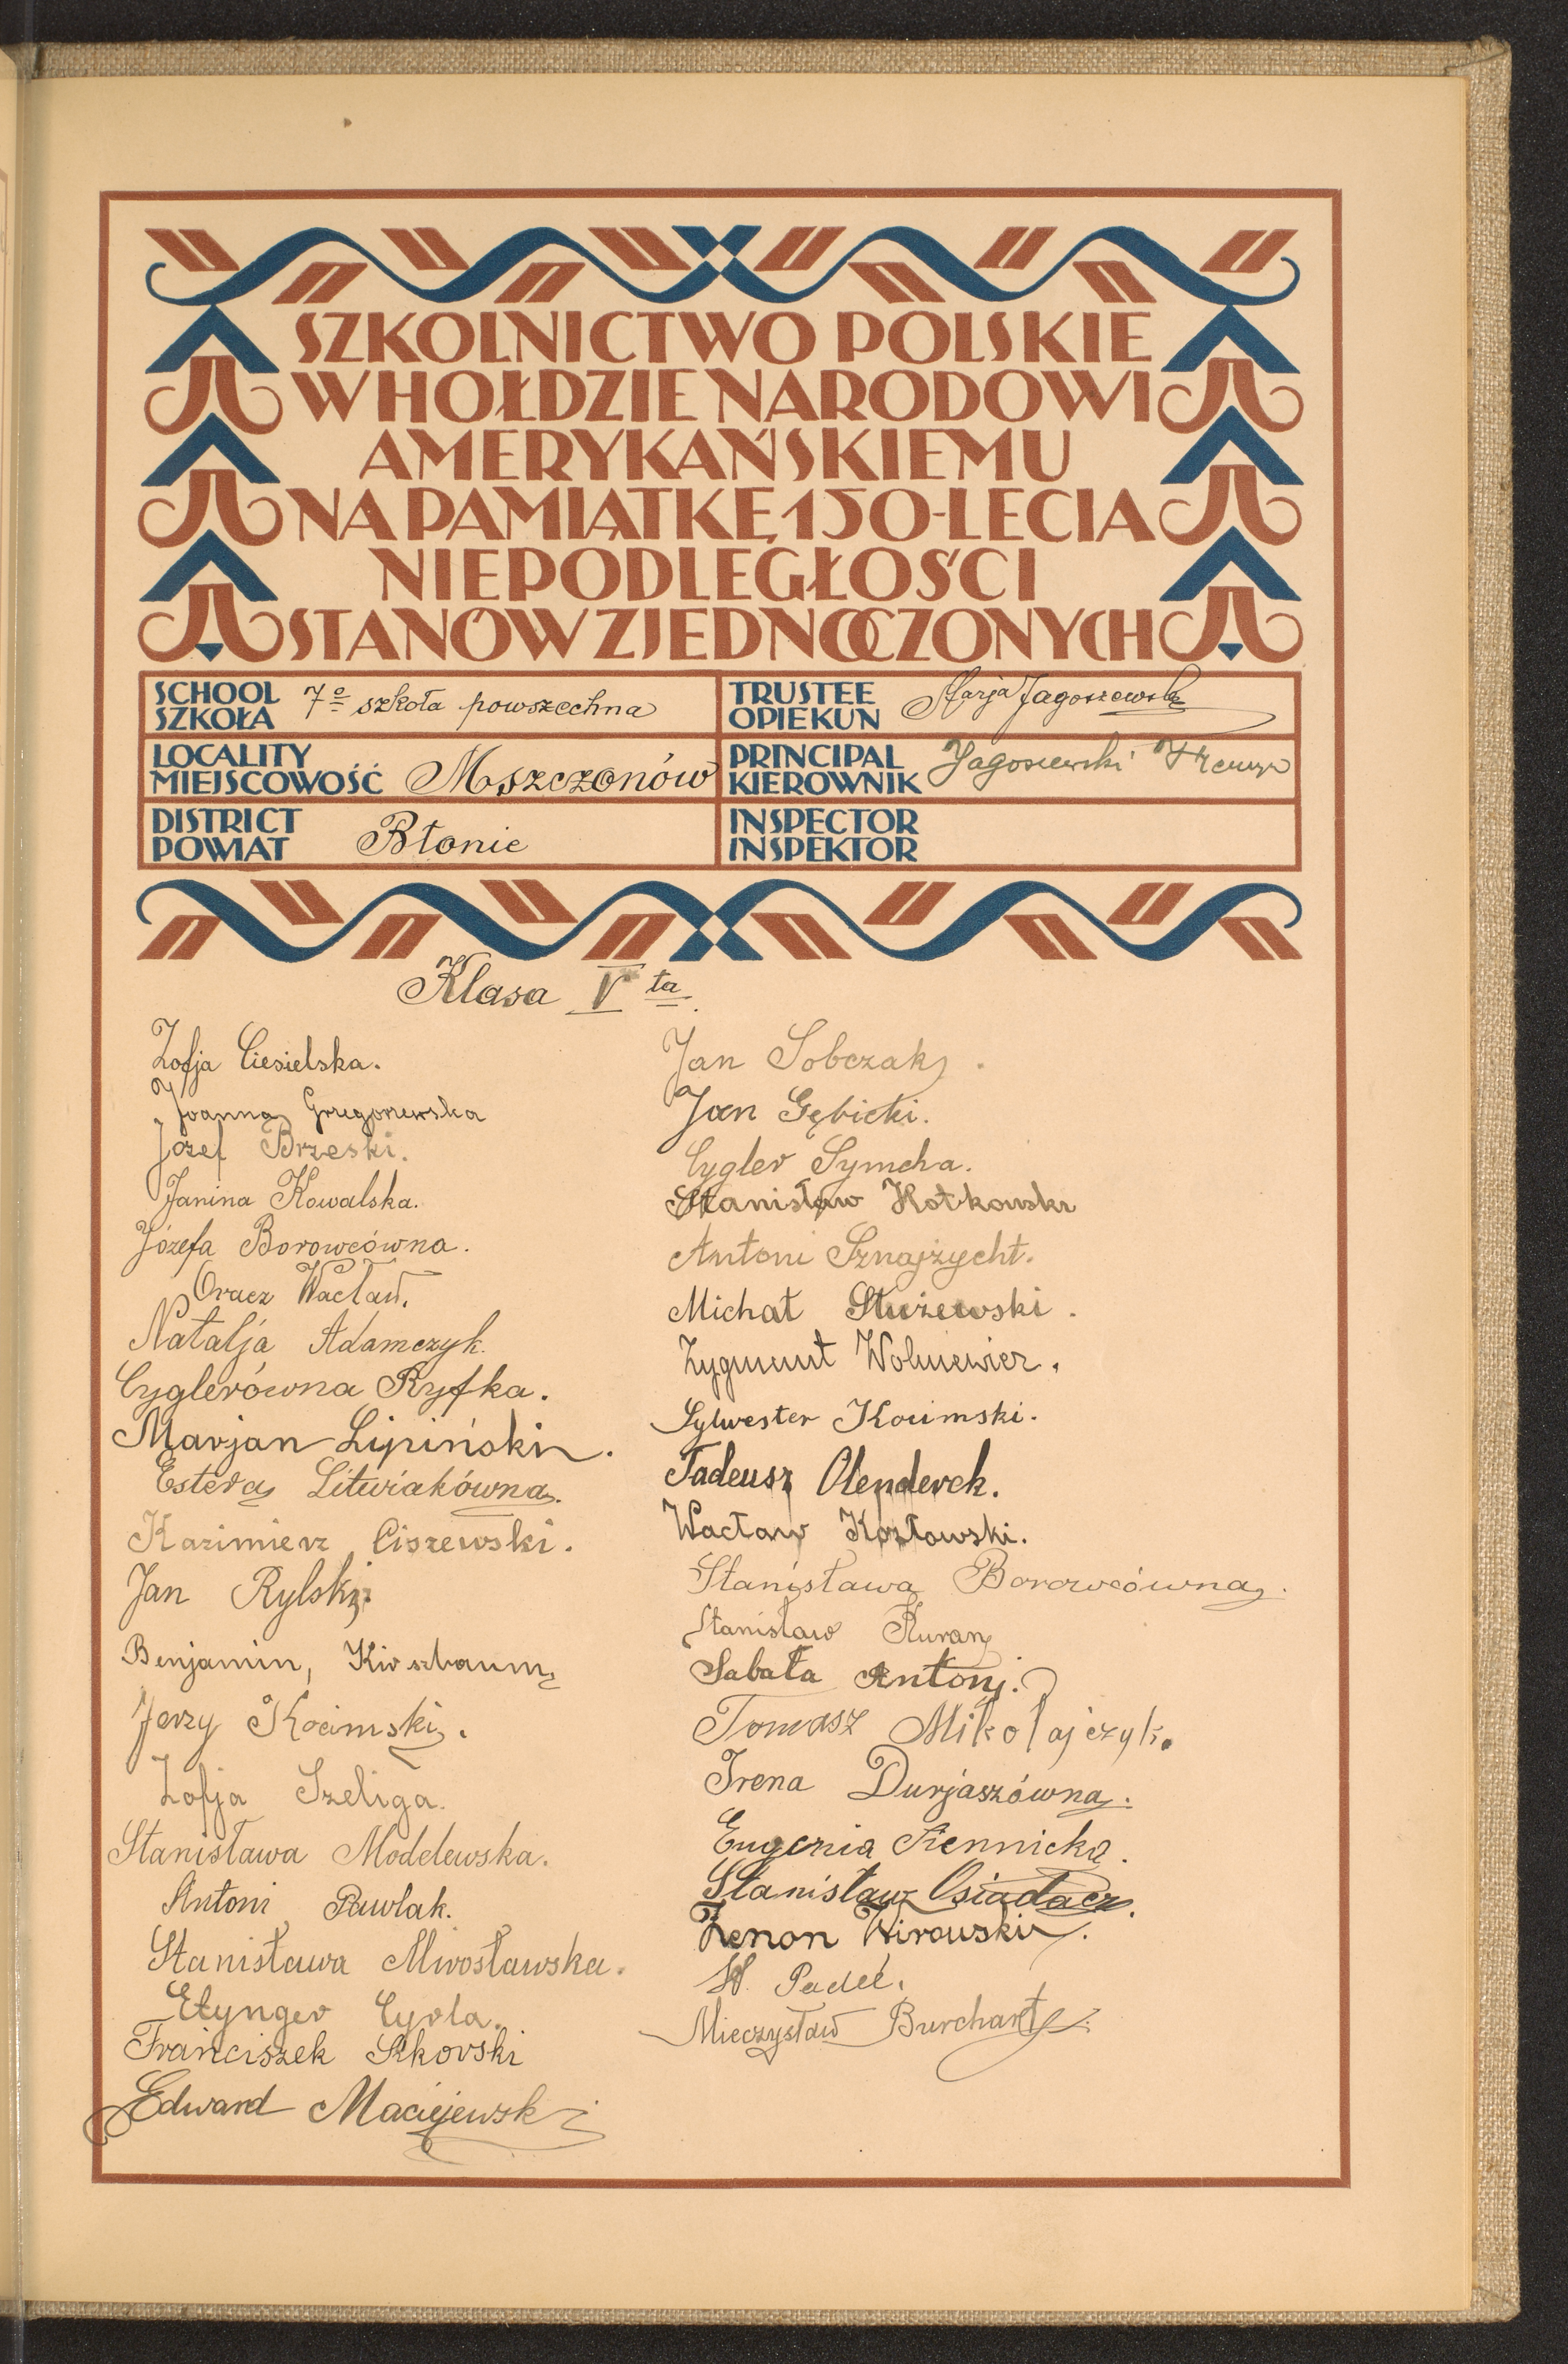 SZKOLNICTWO POLSKIE
W HOŁDZIE NARODOWI
AMERYKAŃSKIEMU
NA PAMIĄTKĘ 150-LECIA
NIEPODLEGŁOŚCI
STANÓW ZJEDNOCZONYCH
SCHOOL
SZKOŁA
7º szkoła powszechna
TRUSTEE
OPIEKUN
Marja Jagoszewska
LOCALITY
MIEJSCOWOŚĆ
Mszczonów
PRINCIPAL
KIEROWNIK
Jagoszewski
DISTRICT
POWIAT
Błonie
INSPECTOR
INSPEKTOR
Klasa V ta.
Zofja Ciesielska.
Joanna Gregorzewska
Józef Brzeski.
Janina Kowalska.
Józefa Borowcówna.
Oracz Wacław.
Natalja Adamczyk.
Cyglerówna Ryfka.
Marjan Lipiński.
Estera Litwiakówna.
Kazimierz Ciszewski.
Jan Rylski.
Benjamin, Kirszbaum
Jerzy Kocimski.
Zofja Szeliga.
Stanisława Modelewska.
Antoni Pawlak.
Stanisława Mirosławska.
Etynger Cyrla.
Franciszek Sikorski
Edward Maciejewski
Jan Sobczak.
Jan Gębicki.
Cygler Symcha.
Stanisław Kotkowski
Antoni Sznajżycht.
Michał Stużewski.
Zygmunt Wolniewicz.
Sylwester Kocimski.
Tadeusz Olenderek.
Wacław Kozłowski.
Stanisława Borowcówna.
Stanisław Kuran
Sabała Antoni.
Tomasz Mikołajczyk.
Irena Durjaszówna.
Eugenia Siennicka.
Stanisław Osiadacz.
Zenon Wirowski.
W. Padeć.
Mieczysław Burchart.